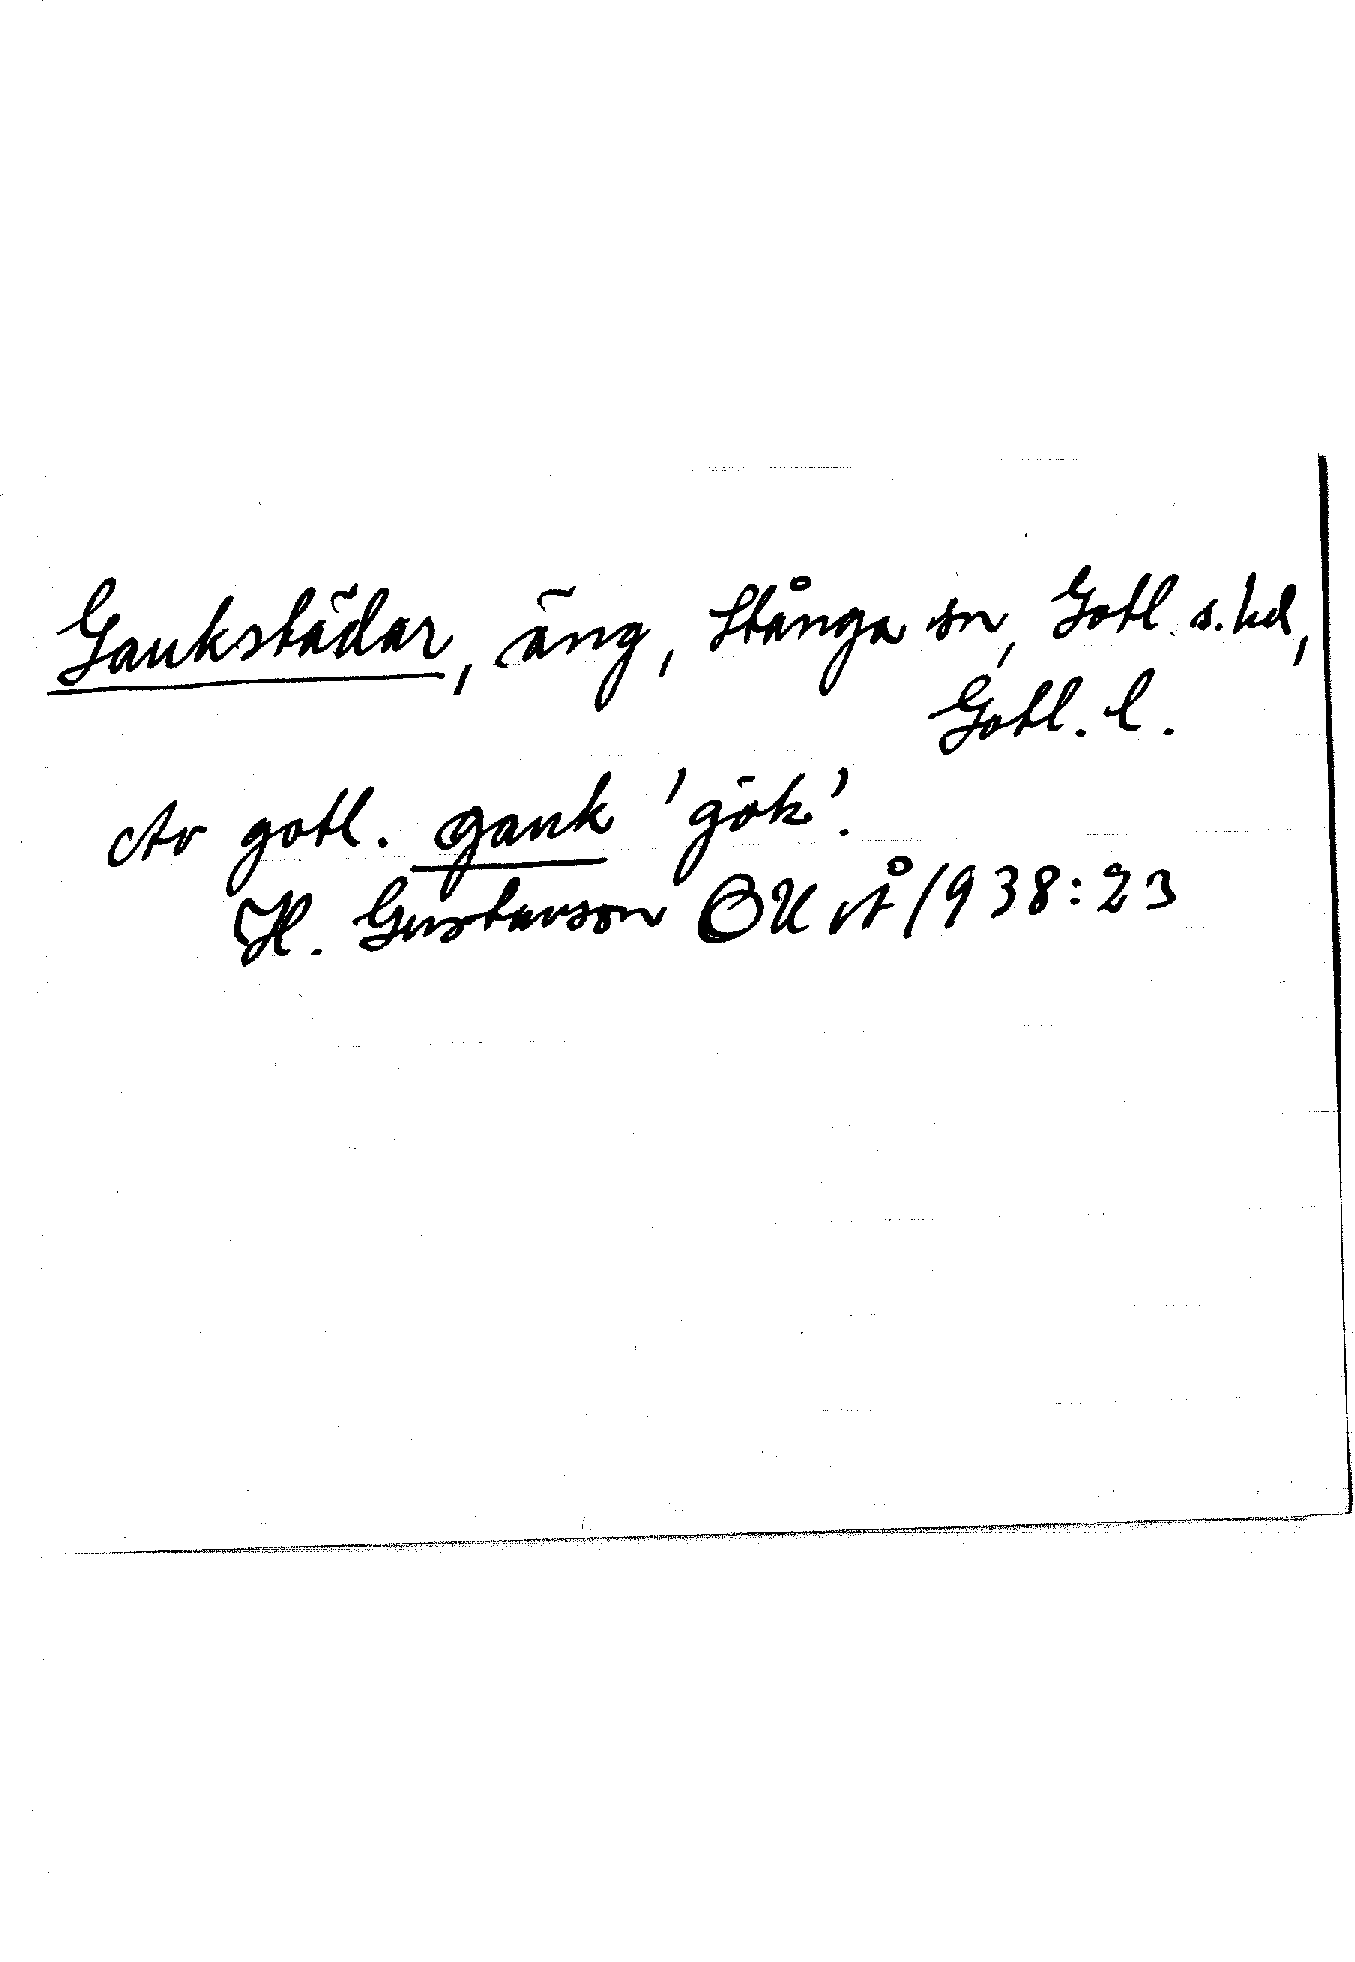 Gaukstädar, äng, Stånga sn, Gotl s. hd,
Gotl. l.
Av gotl. gauk 'gök'.
H. Gustavson OUÅ 1938:23